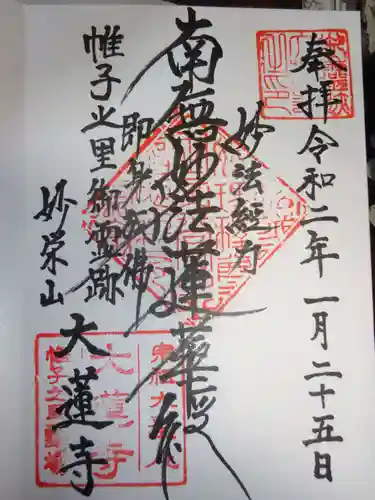 奉拝
令和二年一月二十五日
妙法経力
南無妙法蓮華経
即身成佛
帷子之里御霊跡
妙栄山
大蓮寺